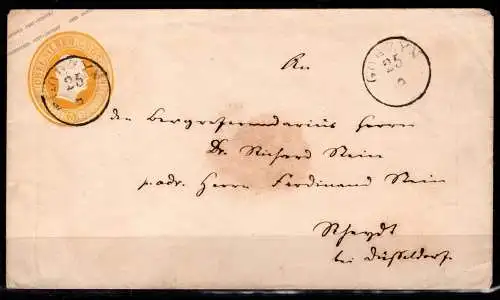 GORZYN
25
GORZYN
25
2
An
den Bergreferendarius Herrn
Dr. Richard Stein
p. adr. Herrn Ferdinand Stein
Rheydt
bei Düsseldorf.